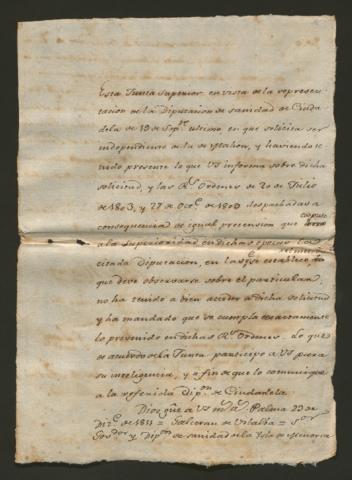 Esta Junta Superior en vista de la represen-
tacion de la Diputacion de sanidad de Ciuda
dela de 19 de Sepre. ultimo, en que solicita ser
independiente de la de Mahon, y haviendo te
nido presente lo que VS informa sobre dicha
solicitud, y las Rs. Ordenes de 20 de Julio
de 1803, y 27 de Octe. de despachadas a
consequencia de igual pretension que expuso
a la Superioridad en dichas epocas la
citada Diputacion, en las qe. se establece lo
que deve observarse sobre el particular,
no ha tenido a bien acceder a dicha solicitud
y ha mandado que se cumpla exactamente
lo prevenido en dichas Rs. Ordenes. Lo que
de acuerdo de la Junta participo a VS para
su inteligencia, y a fin de que lo comunique
a la referida Dipon. de Ciudadela.
Dios gue. a VS ms. as. Palma 23 de
Dize. de 1811 = Salvador de = Sor.
Govdor. y Dipon. de sanidad de la Isla de Menorca